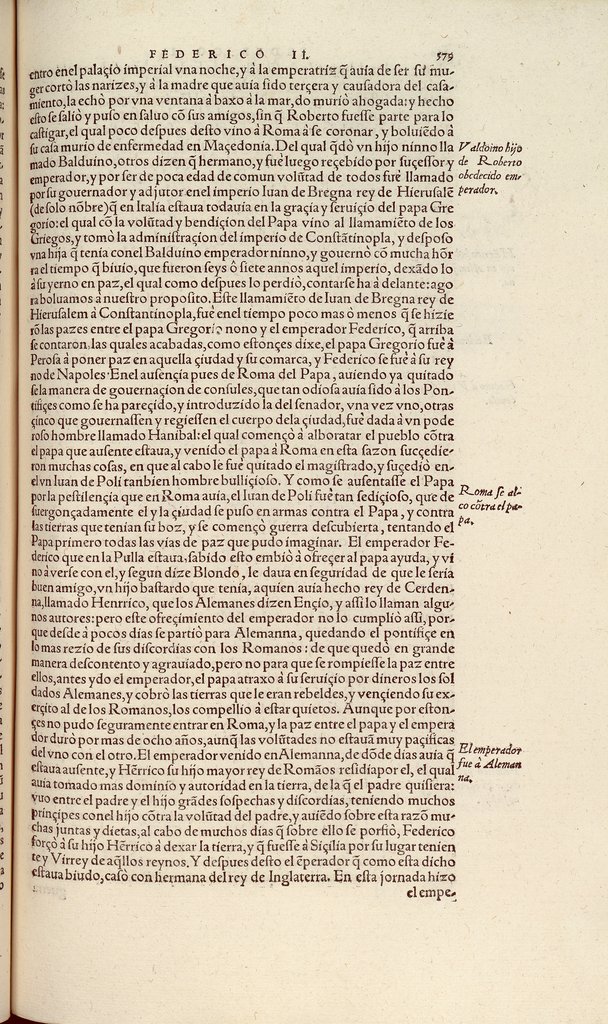 FEDERICO II. 579
entro enel palaçio imperial vna noche,y à la emperatriz q̃ auia de ser su mu-
ger cortò las narizes,y à la madre que auia sido terçera y causadora del casa-
miento,la echò por vna ventana à baxo à la mar,do murio ahogada:y hecho
esto se saliò y puso en saluo cõ sus amigos,sin q̃ Roberto fuesse parte para lo
castigar,el qual poco despues desto vino à Roma à se coronar, y boluiẽdo à
su casa murio de enfermedad en Maçedonia.Del qual q̃dò vn hijo ninno lla
mado Balduino,otros dizen q̃ hermano,y fuè luego reçebido por suçessor y
emperador,y por ser de poca edad de comun volũtad de todos fuè llamado
por su gouernador y adjutor enel imperio Iuan de Bregna rey de Hierusalẽ
(de solo nõbre)q̃ en Italia estaua todauia en la graçia y seruiçio del papa Gre
gorio:el qual cõ la volũtad y bendiçion del Papa vino al llamamiẽto de los
Griegos,y tomò la administraçion del imperio de Constãtinopla, y desposo
vna hija q̃ tenia conel Balduino emperador ninno,y gouernò cõ mucha hõr
ra el tiempo q̃ biuio,que fueron seys ò siete annos aquel imperio, dexãdo lo
à su yerno en paz,el qual como despues lo perdiò,contarse ha à delante:ago
ra boluamos à nuestro proposito.Este llamamiẽto de Iuan de Bregna rey de
Hierusalem à Constantinopla,fuè enel tiempo poco mas ò menos q̃ se hizie
rõ las pazes entre el papa Gregorio nono y el emperador Federico, q̃ arriba
se contaron,las quales acabadas,como estonçes dixe,el papa Gregorio fuè à
Perosa à poner paz en aquella çiudad y su comarca, y Federico se fuè à su rey
no de Napoles Enel ausençia pues de Roma del Papa , auiendo ya quitado
se la manera de gouernaçion de consules,que tan odiosa auia sido à los Pon-
tifiçes como se ha pareçido,y introduzido la del senador, vna vez vno,otras
çinco que gouernassen y regiessen el cuerpo dela çiudad,fuè dada à vn pode
roso hombre llamado Hanibal:el qual començò à alboratar el pueblo cõtra
el papa que ausente estaua,y venido el papa à Roma en esta sazon succedie-
ron muchas cosas, en que al cabo le fuè quitado el magistrado,y suçediò en-
el vn Iuan de Poli tanbien hombre bulliçioso. Y como se ausentasse el Papa
por la pestilençia que en Roma auia,el Iuan de Poli fuè tan sediçioso, que de
suergonçadamente el y la çiudad se puso en armas contra el Papa , y contra
las tierras que tenian su boz, y se començò guerra descubierta, tentando el
Papa primero todas las vias de paz que pudo imaginar. El emperador Fe-
derico que en la Pulla estaua,sabido esto embiò à ofreçer al papa ayuda, y vi
no à verse con el,y segun dize Blondo, le daua en seguridad de que le seria
buen amigo,vn hijo bastardo que tenia, aquien auia hecho rey de Cerden-
na,llamado Henrrico, que los Alemanes dizen Ençio, y assi lo llaman algu-
nos autores:pero este ofreçimiento del emperador no lo cumpliò assi, por-
que desde à pocos dias se partiò para Alemanna, quedando el pontifiçe en
lo mas rezio de sus discordias con los Romanos : de que quedò en grande
manera descontento y agrauiado,pero no para que se rompiesse la paz entre
ellos,antes ydo el emperador,el papa atraxo à su seruiçio por dineros los sol
dados Alemanes,y cobrò las tierras que le eran rebeldes,y vençiendo su ex-
erçito al de los Romanos,los compellio à estar quietos. Aunque por eston-
çes no pudo seguramente entrar en Roma,y la paz entre el papa y el empera
dor durò por mas de ocho años,aunq̃ las volũtades no estauã muy paçificas
del vno con el otro.El emperador venido en Alemanna,de dõde dias auia q̃
estaua ausente,y Hẽrrico su hijo mayor rey de Romãos residia por el, el qual
auia tomado mas dominio y autoridad en la tierra, de la q̃ el padre quisiera:
vuo entre el padre y el hijo grãdes sospechas y discordias, teniendo muchos
prinçipes conel hijo cõtra la volũtad del padre,y auiẽdo sobre esta razõ mu-
chas juntas y dietas,al cabo de muchos dias q̃ sobre ello se porfiò, Federico
forçò à su hijo Hẽrrico à dexar la tierra,y q̃ fuesse à Siçilia por su lugar tenien
te y Virrey de aq̃llos reynos. Y despues desto el ẽperador q̃ como esta dicho
estaua biudo,casò con hermana del rey de Inglaterra. En esta jornada hizo
el empe-
Valdoino hijo
de Roberto
obedecido em-
perador.
Roma se al-
co cõtra el pa-
pa.
El emperador
fue à Aleman
na.